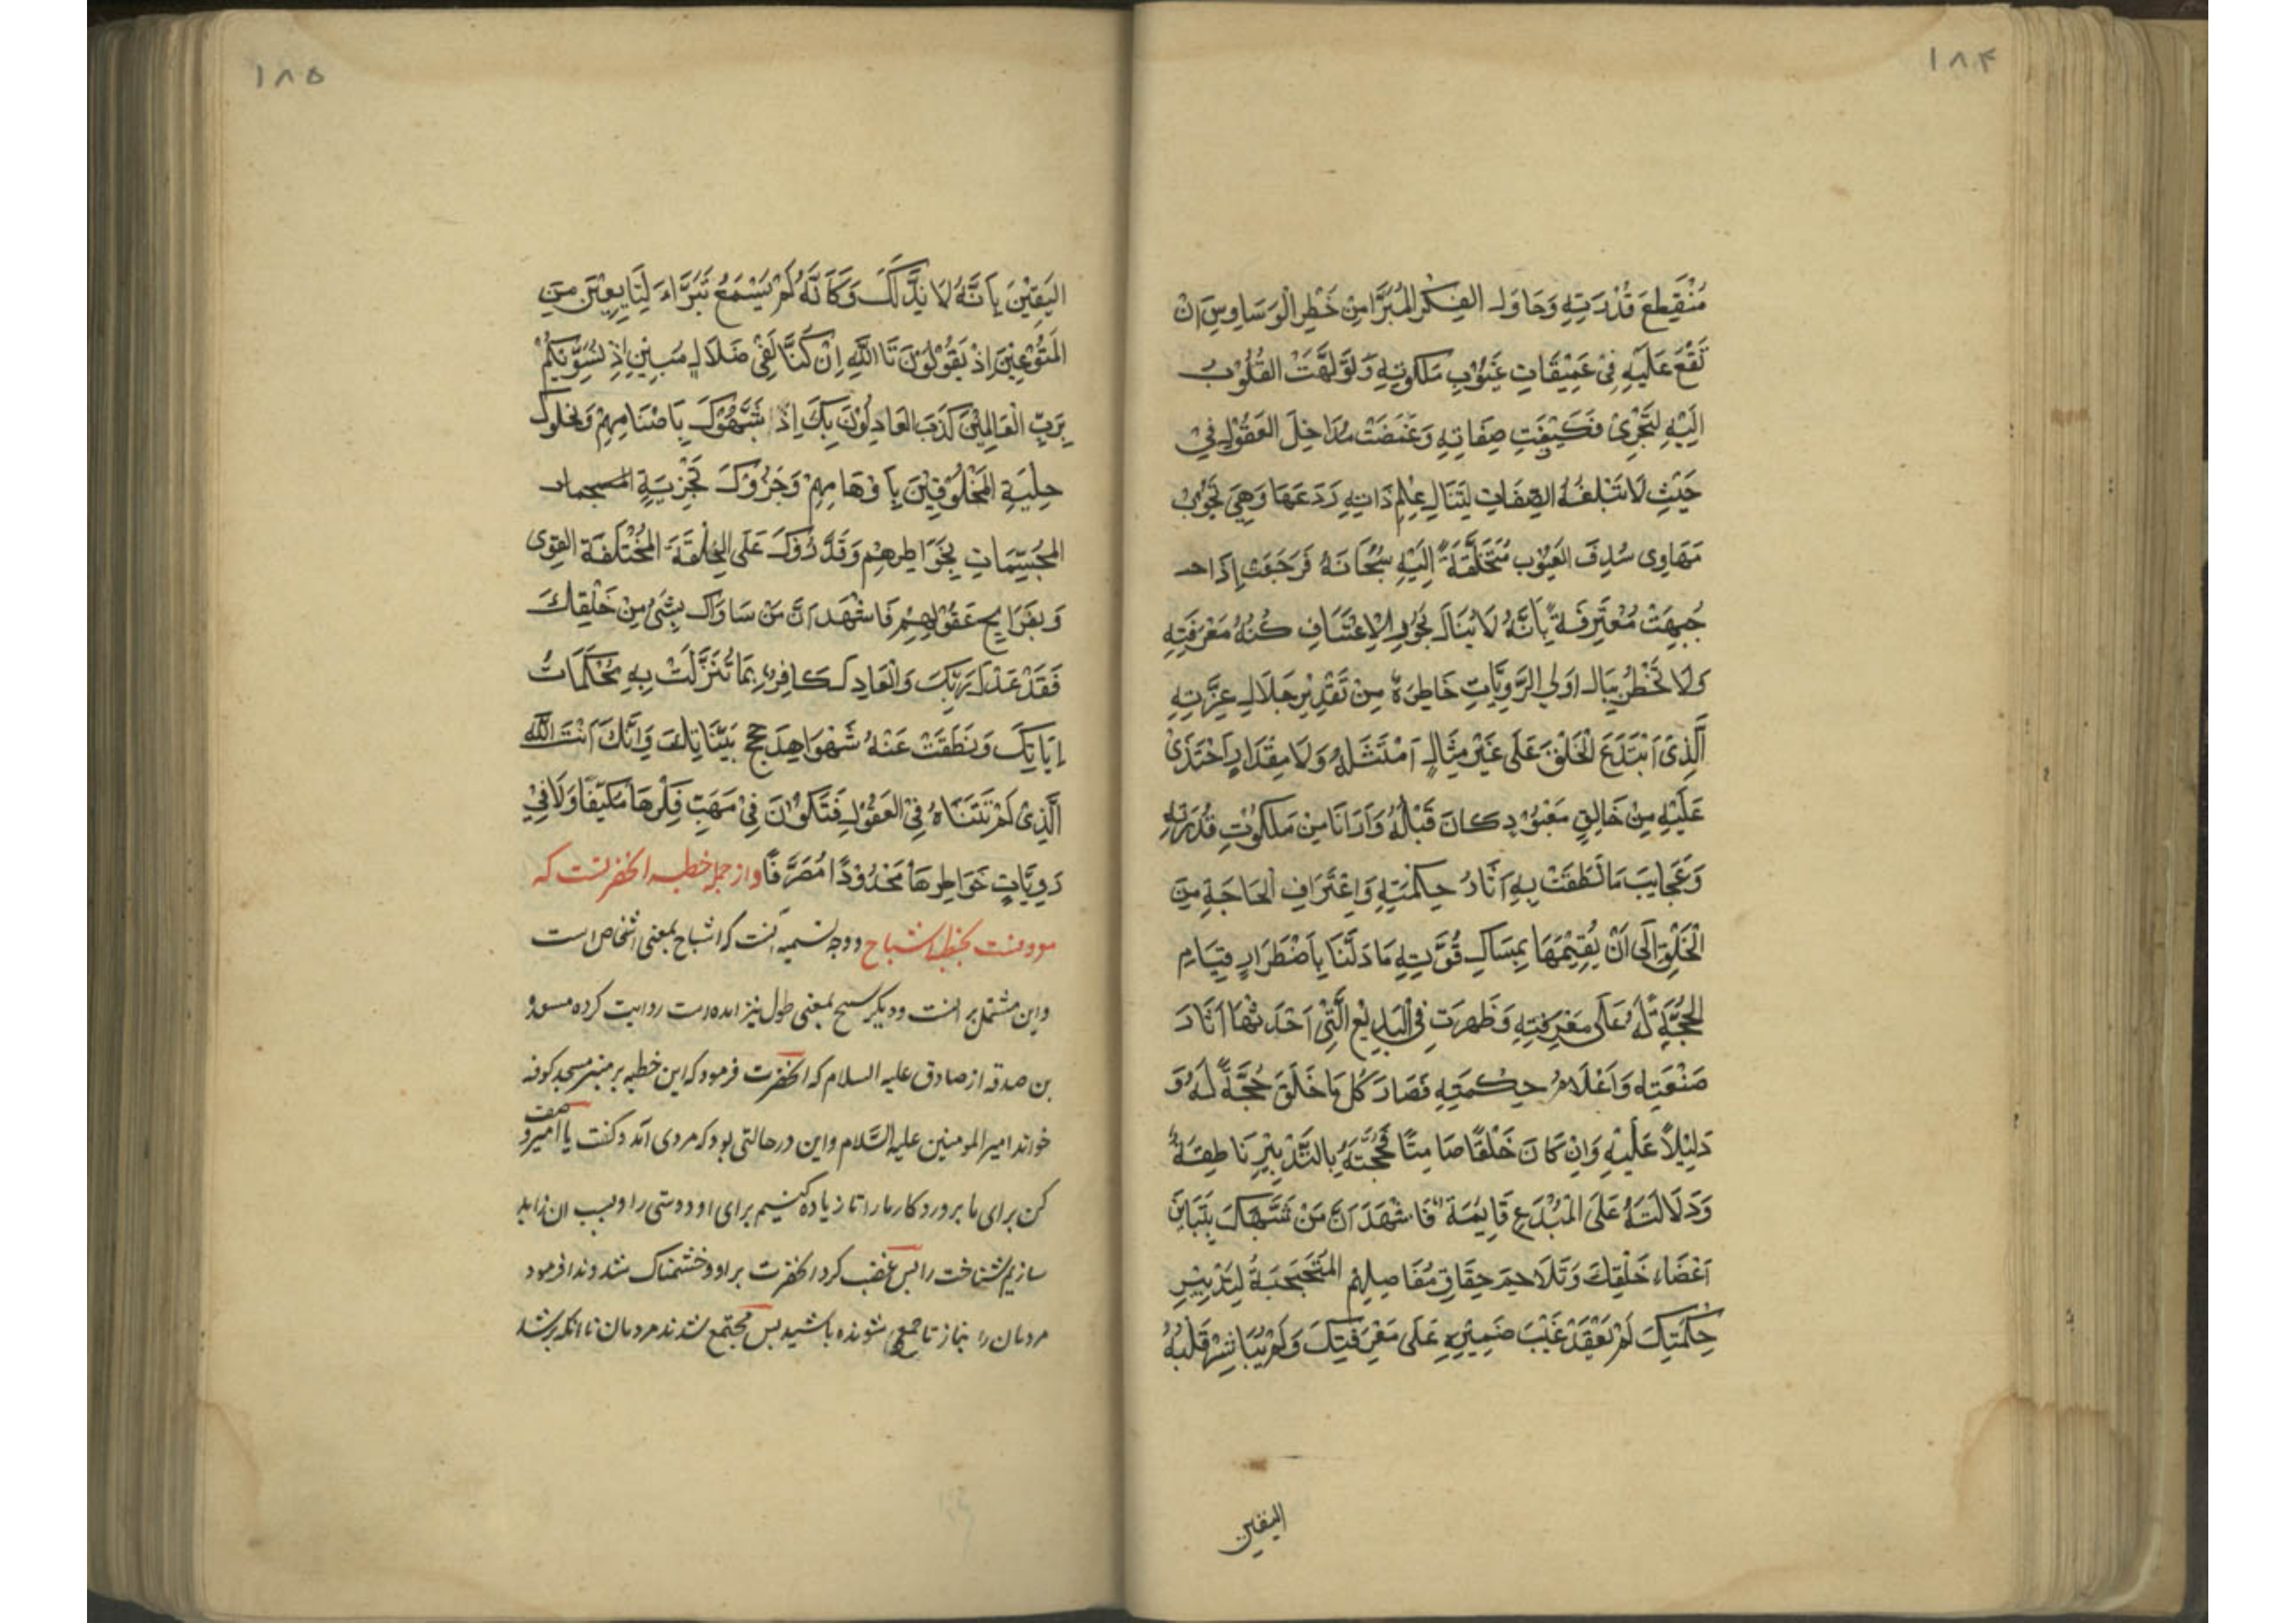 ۱۸۴
مُنْقَطِعَ قُدْرَتِهِ وَحَاوَلَ الفِكْرُ المُبَرَّا مِنْ خَطَرِ الْوَسَاوِسِ اَنْ
تَقَعَ عَلَيْهِ فِىْ عَمِيْقَاتِ غُيُوْبِ مَلَكُوتِهِ وَتَوَلَّهَتْ القُلُوْبُ
اِلَيْهِ لِتَجْرِىْ فىْ كَيْفِيَّتِ صِفَاتِهِ وَغَمَضَتْ مَدَاخِلَ العَقُوْلِ فِىْ
حَيْثِ لَا تَبْلُغُهُ الصِّفَاتِ لِتَنَالِ عِلْمِ ذَاتِهِ رَدَعَهَا وَهِىَ تَجُوْبُ
مَهَاوِى سُدَفَ الغُيُوْبِ مُتَخَلِّصَةً اِلَيْهِ سُبْحَانَهُ فَرَجَعَتْ اِذَا
جُبِهَتْ مُعْتَرِفَةً بِاَنَّهُ لَا يُنَالُ بِجَوْرِ الْاِعْتَسَافِ كُنْهُ مَعْرِفَتِهِ
وَلَا تَخْطُرُ بِبَالِ اُولِى الرَّوِيَّاتِ خَاطِرَةٌ مِنْ تَقْدِيْرِ جَلَالِ عِزَّتِهِ
اَلَّذِىْ اَبْتَدَعَ الْخَلْقَ عَلَى غَيْرِ مِثَالٍ اَمْتَثَلَهُ وَلَا مِقْدَارٍ اَحْتَذَىْ
عَلَيْهِ مِنْ خَالِقٍ مَعْبُوْدٍ كَانَ قَبْلَهُ وَاَرَانَا مِنْ مَلَكُوْتِ قُدْرَتِهِ
وَعَجَايِبَ مَا نَطَقَتْ بِهِ اَثَارُ حِكْمَتِهِ وَاِعْتَرَافِ الْحَاجَةِ مِنَ
الْخَلْقِ اِلَى اَنْ يُقِيْمَهَا بِمِسَاكِ قُوَّتِهِ مَا دَلَّنَا بِاَضْطِرَارِ قِيَامِ
الْحُجَّةِ لَهُ عَلَى مَعْرِفَتِهِ وَظَهَرَتْ فِى الْبَدِايِعِ الَّتِىْ اَحْدَثَهَا اَثَارَ
صَنْعَتِهِ وَاَعْلَامُ حِكْمَتِهِ فَصَارَ كُلُّ مَا خَلَقَ حُجَّةً لَهُ وَ
دَلِيْلًا عَلَيْهِ وَاِنْ كَانَ خَلْقًا صَامِتًا فَحُجَّتُهُ بِالتَّدْبِيْرِ نَاطِقَةٌ
وَدَلَالَتَهُ عَلَى الْمُبْدِعِ قَايِمَةٌ فَاَشْهَدُ اَنَّ مَنْ شَبَّهَكَ بِتَبَايُنِ
اَعْضَاءِ خَلْقِكَ وَتَلَاحِمَ حِقَاقِ مَفَاصِلِهِمْ المُتَحَجِّبَةِ لِتَدْبِيْرِ
حِكْمَتِكَ لَمْ يَعْقِدْ غَيْبَ ضَمِيْرِهِ عَلَى مَعْرِفَتِكَ وَلَمْ يُبَاشِرْ قَلْبُهُ
اليقين
۱۸۵
اليَقِيْنَ بِاَنَّهُ لَا نِدَّ لَكَ وَكَاَنَّهُ لَمْ يَسْمَعْ تَبَرَّاءَ التَّابِعِيْنَ مِنَ
المَتْبُوْعِيْنَ اِذْ يَقُوْلُوْنَ تَا اللّٰهِ اِنْ كُنَّا لَفِىْ ضَلَالٍ مُبِيْنٍ اِذْ نُسَوِّيْكُمْ
بِرَبِّ الْعَالَمِيْنَ كَذَبَ العَادِلُوْنَ بِكَ اِذْ شَبَّهُوْكَ بِاَصْنَامِهِمْ وَنَحَلُوكَ
حِلْيَةَ الْمَخْلُوْقِيْنَ بِاَوْهَامِهِمْ وَجَزَّءُوْكَ تَجْزِيَةِ
المُجَسَّمَاتِ بِخَوَاطِرِهِمْ وَقَدَّرُوْكَ عَلَى الْخِلْقَةَ الْمُخْتَلِفَةِ القُوِىْ
وَبِقَرَايِحِ عَقُوْلِهِمْ فَاَشْهَدُ اَنَّ مَنْ سَاوَاكَ بِشَىْءٍ مِنْ خَلْقِكَ
فَقَدْ عَدَلَ بِكَ وَالْعَادِلُ كَافِرٌ بِمَا تَنَزَّلَتْ بِهِ مُحْكَمَاتُ
اٰيَاتِكَ وَنَطَقَتْ عَنْهُ شَوَاهِدَ حُجَجِ بَيِّنَاتِكَ وَاَنَّكَ اَنْتَ اللّٰهُ
الَّذِىْ لَمْ تَتَنَاهُ فِى الْعُقُوْلِ فَتَكُوْنَ فِىْ مَهَبِّ فِكْرِهَا مُكَيَّفًا وَلَا فِىْ
رَوِيَّاتِ خَوَاطِرِهَا مَحْدُوْدًا مُصَرَّفًا واز جمله خطبه انحضرتست كه
موسومست بخطبهٔ اشباح ووجه تسميه آنست كه اشباح بمعنى اشخاص است
واين مشتملبر آنست وديكر سبح بمعنى طول نيز امده است روايت كرده مسعدة
بن صدقه از صادق عليه السلام كه انحضرت فرمود كه اين خطبه بر منبر مسجد كوفه
خواند امير المومنين عليه السَّلام واين در حالتى بود كه مردى آمد وكفت يا امير وصف
كن براى ما پروردكار مارا تا زياده كنيم براى او دوستى را وبسبب ان زايد
سازيم شناخت را پس غضب كرد انحضرت بر او وخشمناك شد وندا فرمود
مردمان را بنماز تا جمع شونده باشيد پس مجتمع شدند مردمان تا انكه پر شد